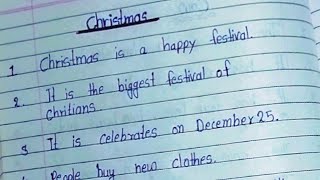 Christmas
1 Christmas is a happy festival.
2. It is the biggest festival of
chritians.
3 It is celebrates on December 25.
People buy new clothes.